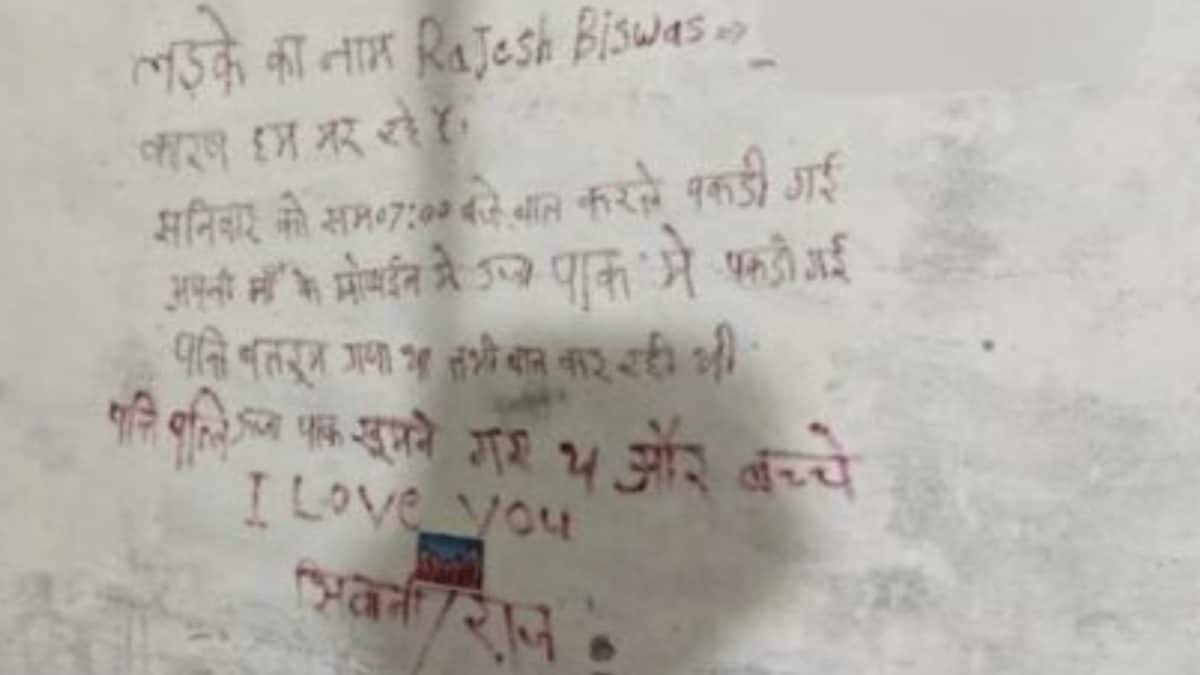 लड़के का नाम Rajesh Biswas ⇒
कारण हम मर रहे है।
सनिवार को सम07:00 बजे बात करते पकडी गई
अपनी माँ के मोबाईल से ऊर्जा पार्क में पकडी गई
पति बातरूम गया था तभी बात कर रही थी
पति पत्नि ऊर्जा पार्क घूमने गए थे और बच्चे
I Love You
राज